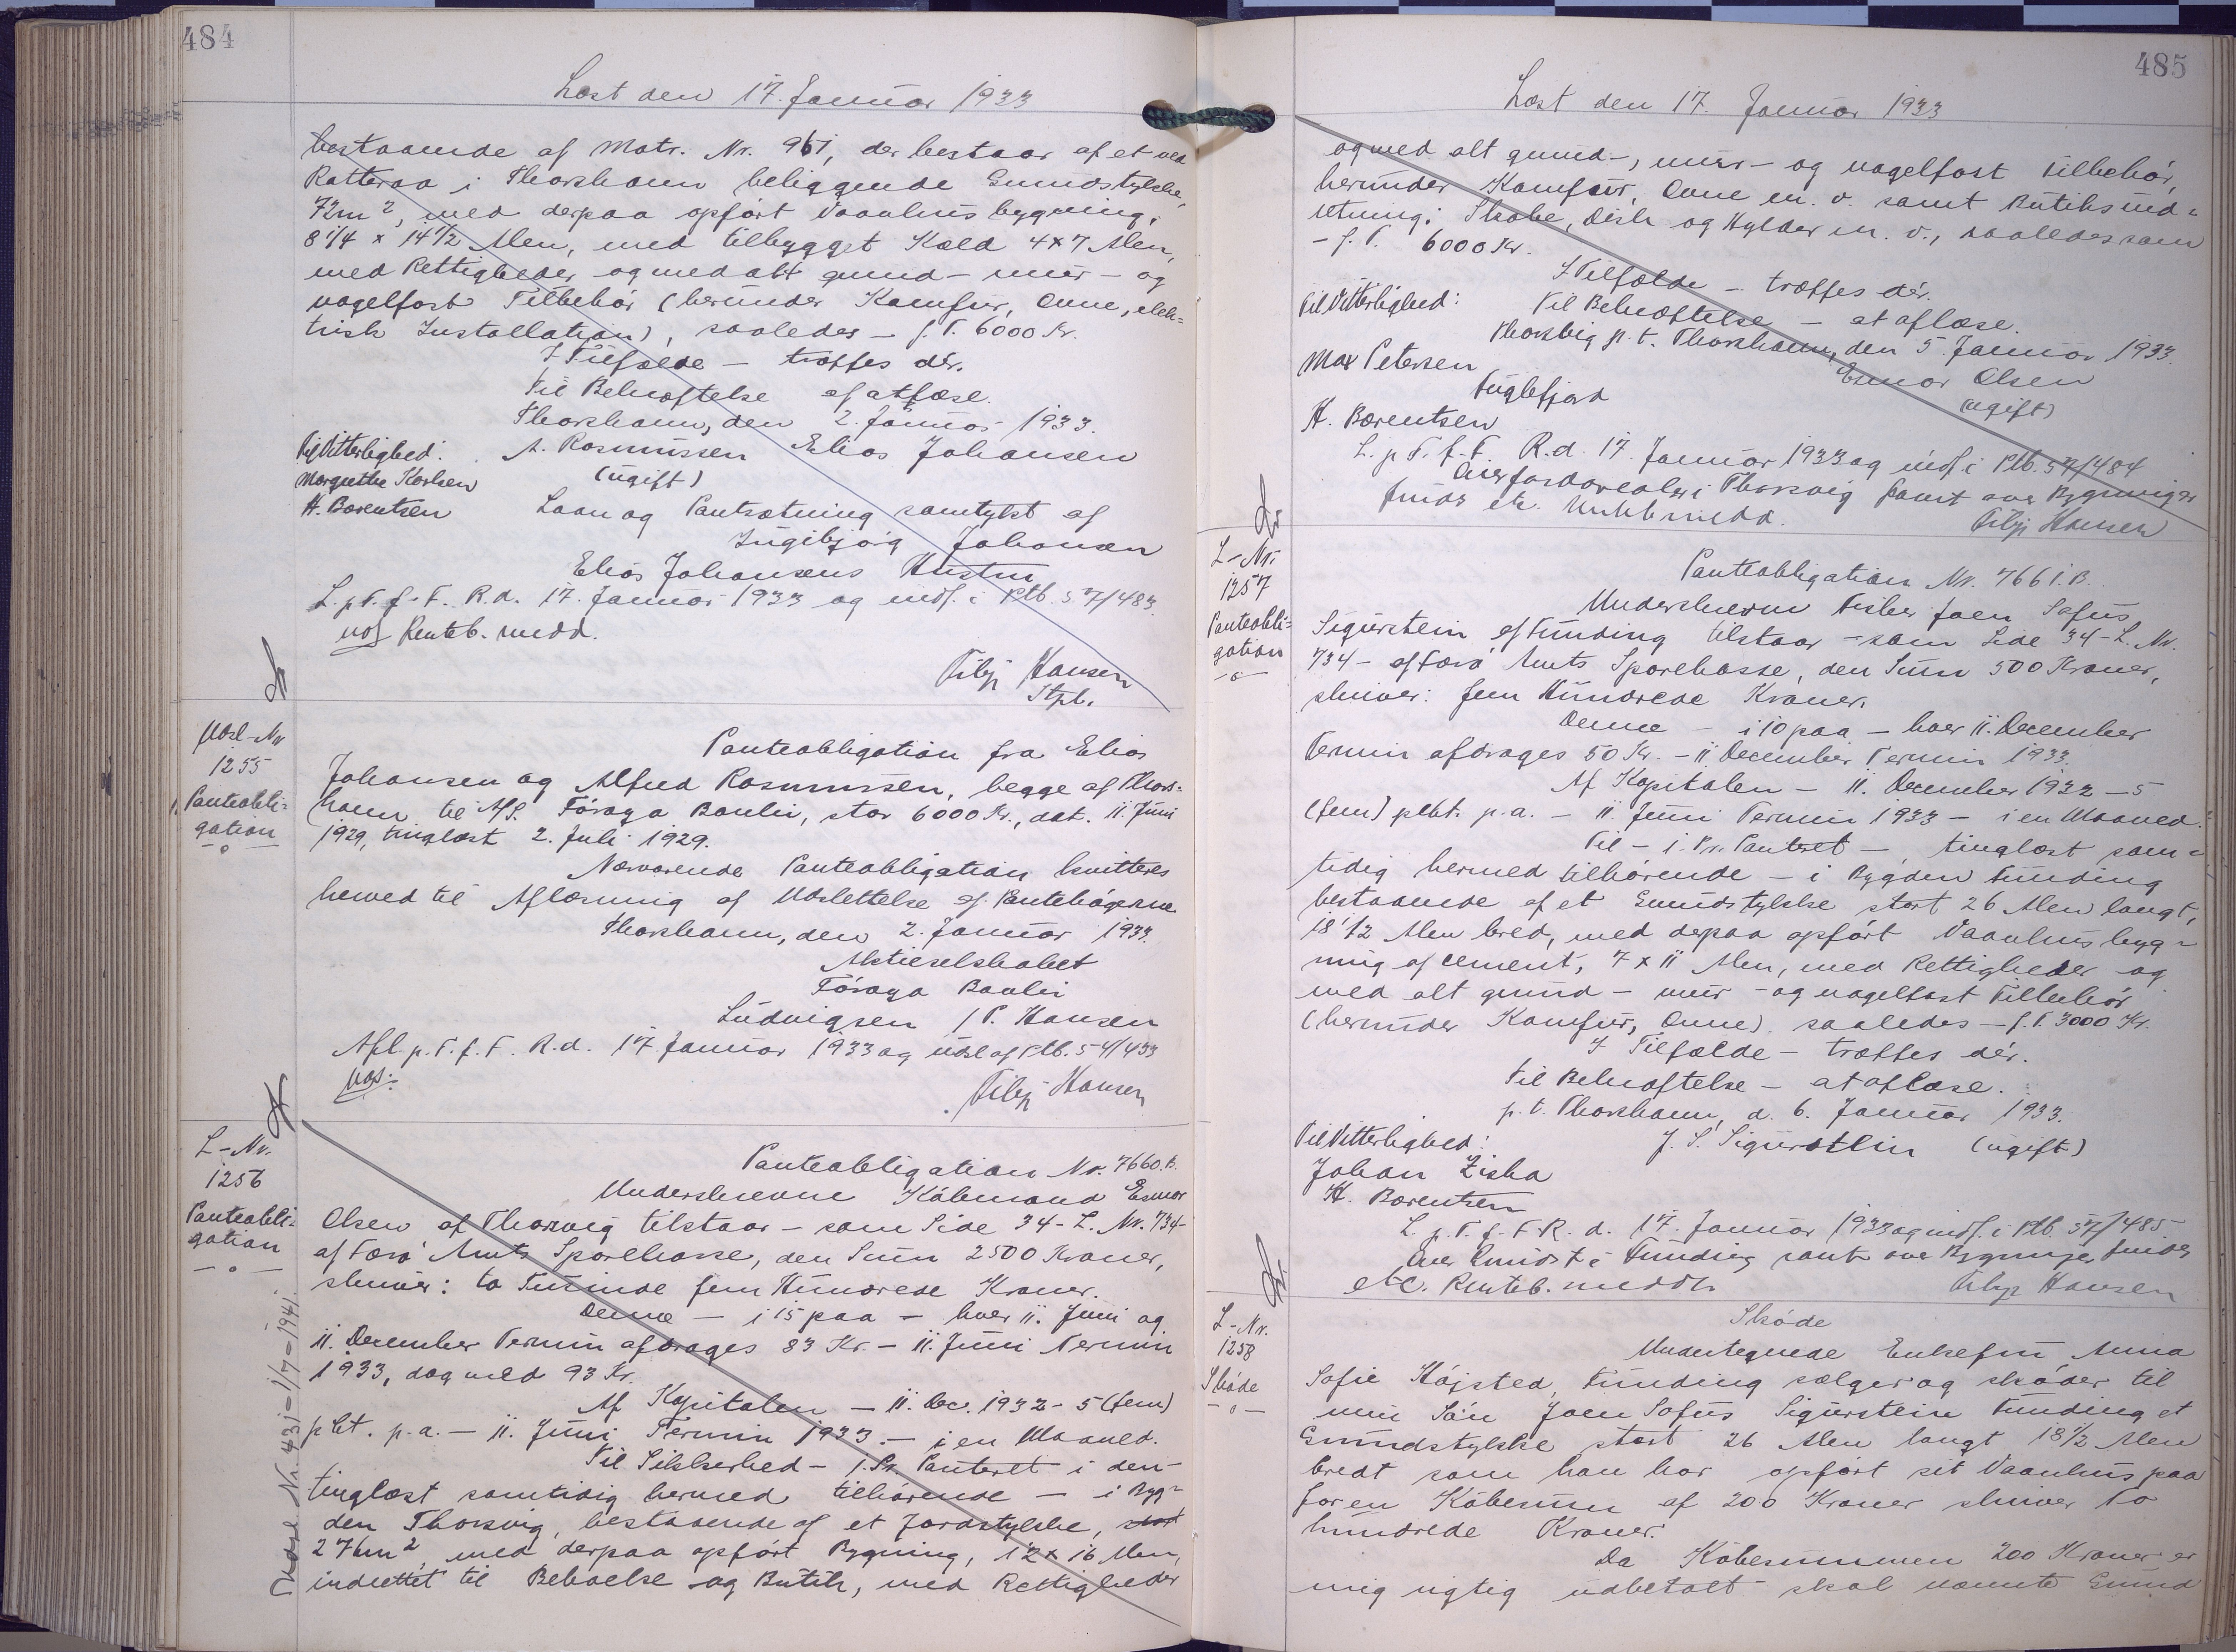 484
Læst den 17. Januar 1933
bestaaende af Matr. Nr. 961, der bestaar af et ved
Rættaraa i Thorshavn beliggende Grundstykke,
72m², med derpaa opført Vaanhusbygning,
8 1/4 x 14 1/2 Alen, med tilbygget Kæld 4x7 Alen,
med Rettigheder og med alt grund- mur- og
nagelfast Tilbehør (herunder Komfur, Ovne, elek=
trisk Installation), saaledes - f. T. 6000 Kr.
I Tilfælde - træffes dér.
Til Bekræftelse af atlæse.
Thorshavn, den 2. Januar 1933.
Til Vitterlighed: A. Rasmussen Elias Johansen
Margrethe Karlsen (ugift)
H. Barentsen Laan og Pantsætning samtykt af
Ingibjørg Johansen
Elias Johansens Hustru
L. p. T. f. F. R. d. 17. Januar 1933 og indf. i Ptb. 57/483.
Renteb. medd.
Tilj Hansen
Stpl.
Udsl-Nr
1255
Panteobli=
gation
-o-
Panteobligation fra Elias
Johansen og Alfred Rasmussen, begge af Thors=
havn til A/S. Føroya Banki, stor 6000 Kr., dat. 11. Juni
1929, tinglæst 2. Juli 1929.
Nærværende Panteobligation kvitteres
herved til Aflæsning af Udslettelse af Pantebøgerne
Thorshavn, den 2. Januar 1933.
Aktieselskabet
Føroya Banki
Ludvigsen / P. Hansen
Afl. p. T. f. F. R. d. 17. Januar 1933 og udsl af Ptb. 54/433
Tilj Hansen
L-Nr.
1256
Panteobli=
gation
-o-
Udsl Nr. 431-1/7-1941.
Panteobligation Nr. 7660.B.
Underskrevne Købmand Esmar
Olsen af Thorsvig tilstaar - som Side 34-L. Nr. 734-
af Færø Amts Sparekasse, den Sum 2500 Kroner,
skriver: to Tusinde fem Hundrede Kroner.
Denne - i 15 paa - hver 11. Juni og
11. December Termin afdrages 83 Kr. - 11. Juni Termin
1933, dog med 93 Kr.
Af Kapitalen - 11. Dec. 1932 - 5 (fem)
pCt. p. a. - 11. Juni Termin 1933. - i en Maaned.
Til Sikkerhed - 1. Pr. Panteret i den -
tinglæst samtidig hermed tilhørende - i Byg=
den Thorsvig, bestaaende af et Jordstykke, stort
276m², med derpaa opført Bygning, 12 x 16 Alen,
indrettet til Beboelse og Butik, med Rettigheder
485
Læst den 17. Januar 1933
og med alt grund-, mur- og nagelfast Tilbehør,
herunder Komfur, Ovne m. v. samt Butiksind=
retning: Skabe, Disk og Hylder m. v., saaledes som
- f. T. 6000 Kr.
I Tilfælde - træffes dér.
Til Vitterlighed: Til Bekræftelse - at aflæse.
Thorsvig p. t. Thorshavn, den 5. Januar 1933.
Max Petersen Esmar Olsen
Fuglefjord (ugift)
H. Barentsen
L. p. T. f. F. R. d. 17. Januar 1933 og indf. i Ptb. 57/484
Over Jordarealer i Thorsvig samt ove Bygninger
findes etc. medd. Tilj Hansen
L-Nr.
1257
Panteobli=
gation
-o-
Panteobligation Nr. 7661.B.
Underskrevne Fisker Joen Sofus
Sigurstein af Funding tilstaar - som Side 34-L. Nr.
734- af Færø Amts Sparekasse, den Sum 500 Kroner,
skriver: fem Hundrede Kroner.
Denne - i 10 paa - hver 11. December
Termin afdrages 50 Kr. - 11. December Termin 1933.
Af Kapitalen - 11. December 1932 - 5
(fem) pCt. p. a. - 11. Juni Termin 1933 - i en Maaned.
Til - 1. Pr. Panteret - tinglæst sam=
tidig hermed tilhørende - i Bygden Funding
bestaaende af et Grundstykke stort 26 Alen langt,
18 1/2 Alen bred, med depaa opført Vaanhusbyg=
ning af Cement, 7 x 11 Alen, med Rettigheder og
med alt grund- mur- og nagelfast Tilbehør
(herunder Komfur, Ovne). saaledes - f. T. 3000 Kr.
I Tilfælde - træffes dér.
Til Bekræftelse - at aflæse.
p. t. Thorshavn, d. 6. Januar 1933.
Til Vitterlighed: J. S. Sigurstein (ugift)
Johan Ziska
H. Barentsen
L. p. T. f. F. R. d. 17. Januar 1933 og indf. i Ptb. 57/485.
Over Grundst. i Funding samt ove Bygninger findes
etc. Renteb. meddt. Tilj Hansen
L-Nr.
1258
Skøde
-o-
Skøde
Undertegnede Enkefru Anna
Sofie Højsted, Funding sælger og skøder til
min Søn Joen Sofus Sigurstein Funding et
Grundstykke stort 26 Alen langt 18 1/2 Alen
bredt som han har opført sit Vaanhus paa
for en Købesum af 200 Kroner skriver To
hundrede Kroner.
Da Købesummen 200 Kroner er
mig rigtig udbetalt skal nævnte Grund